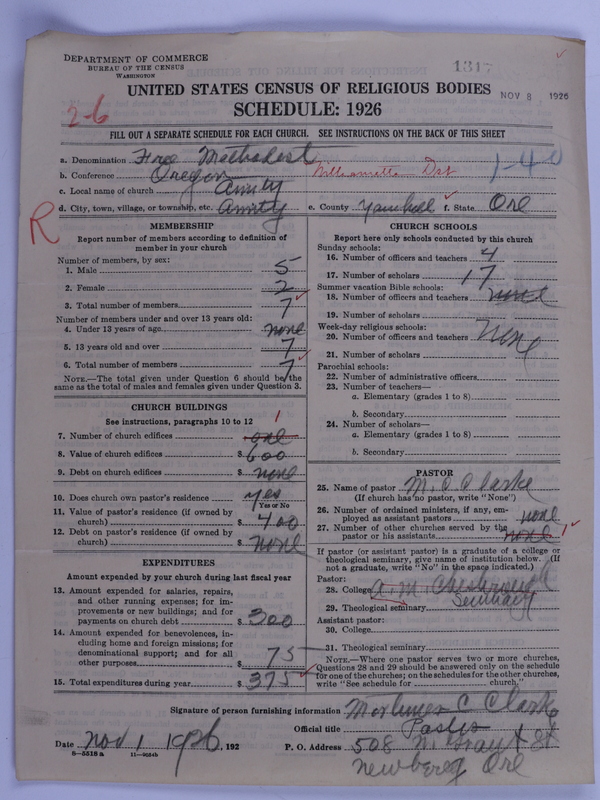 DEPARTMENT OF COMMERCE
BUREAU OF THE CENSUS
WASHINGTON
1317
UNITED STATES CENSUS OF RELIGIOUS BODIES
NOV 8 1926
SCHEDULE: 1926
2-6
FILL OUT A SEPARATE SCHEDULE FOR EACH CHURCH. SEE INSTRUCTIONS ON THE BACK OF THIS SHEET
a. Denomination Free Methodist
b. Conference Oregon Willamette Dst 1-40
c. Local name of church Amity
d. City, town, village, or township, etc. Amity e. County Yamhill f. State Ore
R
MEMBERSHIP
Report number of members according to definition of member in your church
Number of members, by sex:
1. Male 5
2. Female 2
3. Total number of members 7
Number of members under and over 13 years old:
4. Under 13 years of age none
5. 13 years old and over 7
6. Total number of members 7
NOTE.—The total given under Question 6 should be the same as the total of males and females given under Question 3.
CHURCH BUILDINGS
See instructions, paragraphs 10 to 12
7. Number of church edifices one 1
8. Value of church edifices $ 600
9. Debt on church edifices $ none
10. Does church own pastor's residence yes
Yes or No
11. Value of pastor's residence (if owned by church) $ 400
12. Debt on pastor's residence (if owned by church) $ none
EXPENDITURES
Amount expended by your church during last fiscal year
13. Amount expended for salaries, repairs, and other running expenses; for improvements or new buildings; and for payments on church debt $ 300
14. Amount expended for benevolences, including home and foreign missions; for denominational support; and for all other purposes $ 75
15. Total expenditures during year $ 375
CHURCH SCHOOLS
Report here only schools conducted by this church
Sunday schools:
16. Number of officers and teachers 4
17. Number of scholars 17
Summer vacation Bible schools:
18. Number of officers and teachers none
19. Number of scholars
Week-day religious schools:
20. Number of officers and teachers none
21. Number of scholars
Parochial schools:
22. Number of administrative officers
23. Number of teachers—
a. Elementary (grades 1 to 8)
b. Secondary
24. Number of scholars—
a. Elementary (grades 1 to 8)
b. Secondary
PASTOR
25. Name of pastor M. C. Clarke
(If church has no pastor, write "None")
26. Number of ordained ministers, if any, employed as assistant pastors none
27. Number of other churches served by the pastor or his assistants none 1
If pastor (or assistant pastor) is a graduate of a college or theological seminary, give name of institution below. (If not a graduate, write "No" in the space indicated.)
Pastor:
28. College A. M. Seminary
29. Theological seminary
Assistant pastor:
30. College
31. Theological seminary
NOTE.—Where one pastor serves two or more churches, Questions 28 and 29 should be answered only on the schedule for one of the churches; on the schedules for the other churches, write "See schedule for church."
Signature of person furnishing information Mortimer C Clarke
Official title Pastor
Date Nov 1 1926, 192 P. O. Address 508 N. Grant St
8—5518 a 11—9654b
Newberg Ore